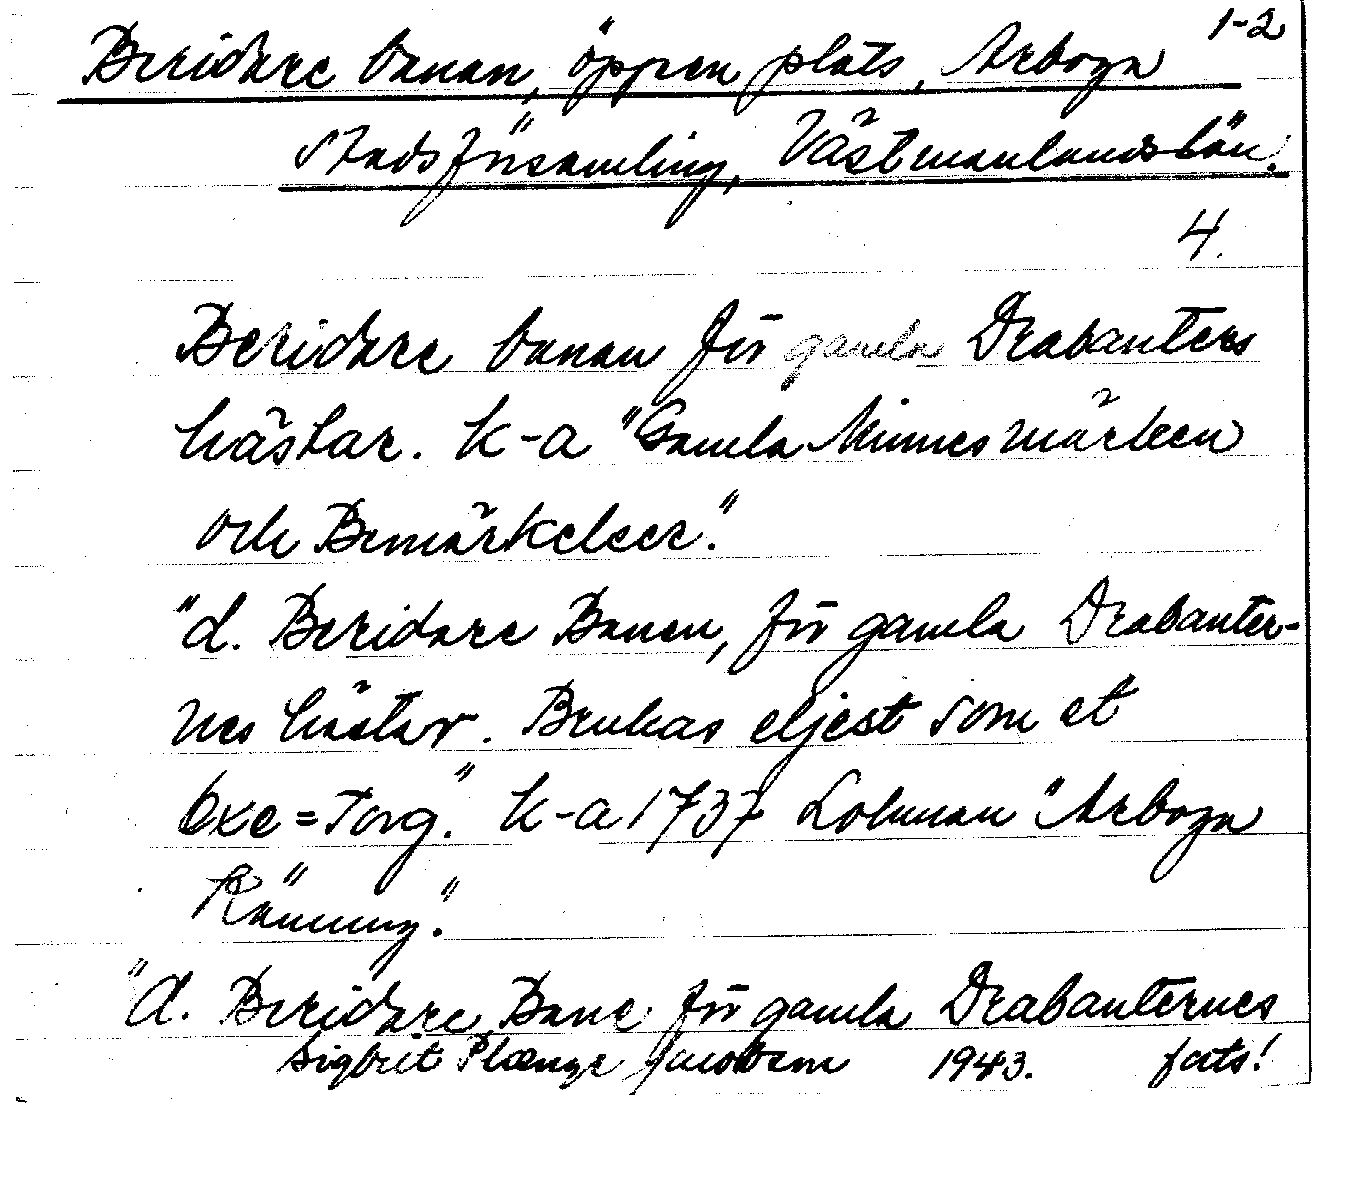 1-2
Beridare banan, öppen plats, Arboga
stadsförsamling, Västmanlandslän.
4.
Beridare banan för gamla Drabanters
hästar. k-a "Gamla Minnesmärken
och Bemärkelser."
"d. Beridare Banen, för gamla Drabanter-
nes hästar. Brukas eljest som et
Oxe=Torg." k-a 1737 Lohman "Arboga
Känning".
"d. Beridare Bane för gamla Drabanternes
Sigbrit Plænge Jacobsen 1943. forts!